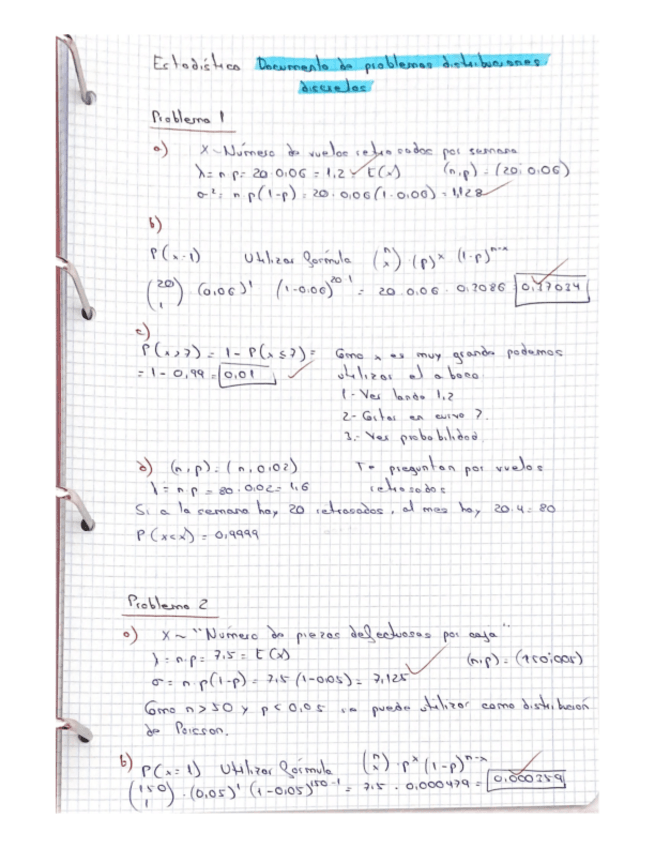 Estadística Documento de problemas distribuciones
discretas
Problema 1
a) X~Número de vuelos retrasados por semana
λ= n p= 20·0,06 = 1,2 = E(x) (n,p) = (20; 0,06)
σ²= n p(1-p) = 20·0,06(1-0,06) = 1,128
b)
P(x=1) Utilizar formula (n x)·(p)^x (1-p)^n-x
(20 1) (0,06)^1 (1-0,06)^20-1 = 20·0,06·0,3086 0,37024
c)
P(x>7) = 1- P(x≤7) = Como x es muy grande podemos
= 1- 0,99 = 0,01 utilizar el abaco
1- Ver landa 1,2
2- Cortar en curva 7.
3.- Ver probabilidad
d) (n,p) = (n,0,02) Te preguntan por vuelos
λ= n p = 80·0,02= 1,6 retrasados
Si a la semana hay 20 retrasados, al mes hay 20·4= 80
P(x<x) = 0,9999
Problema 2
a) X~ "Número de piezas defectuosas por caja"
λ= n·p= 7,5 = E(x) (n,p) = (150;0,05)
σ= n·p(1-p) = 7,5 (1-0,05) = 7,125
Como n>50 y p<0,05 se puede utilizar como distribución
de Poisson.
b) P(x=1) Utilizar formula (n x)·p^x (1-p)^n-x
(150 1)·(0,05)^1 (1-0,05)^150-1 = 7,5·0,000479 =